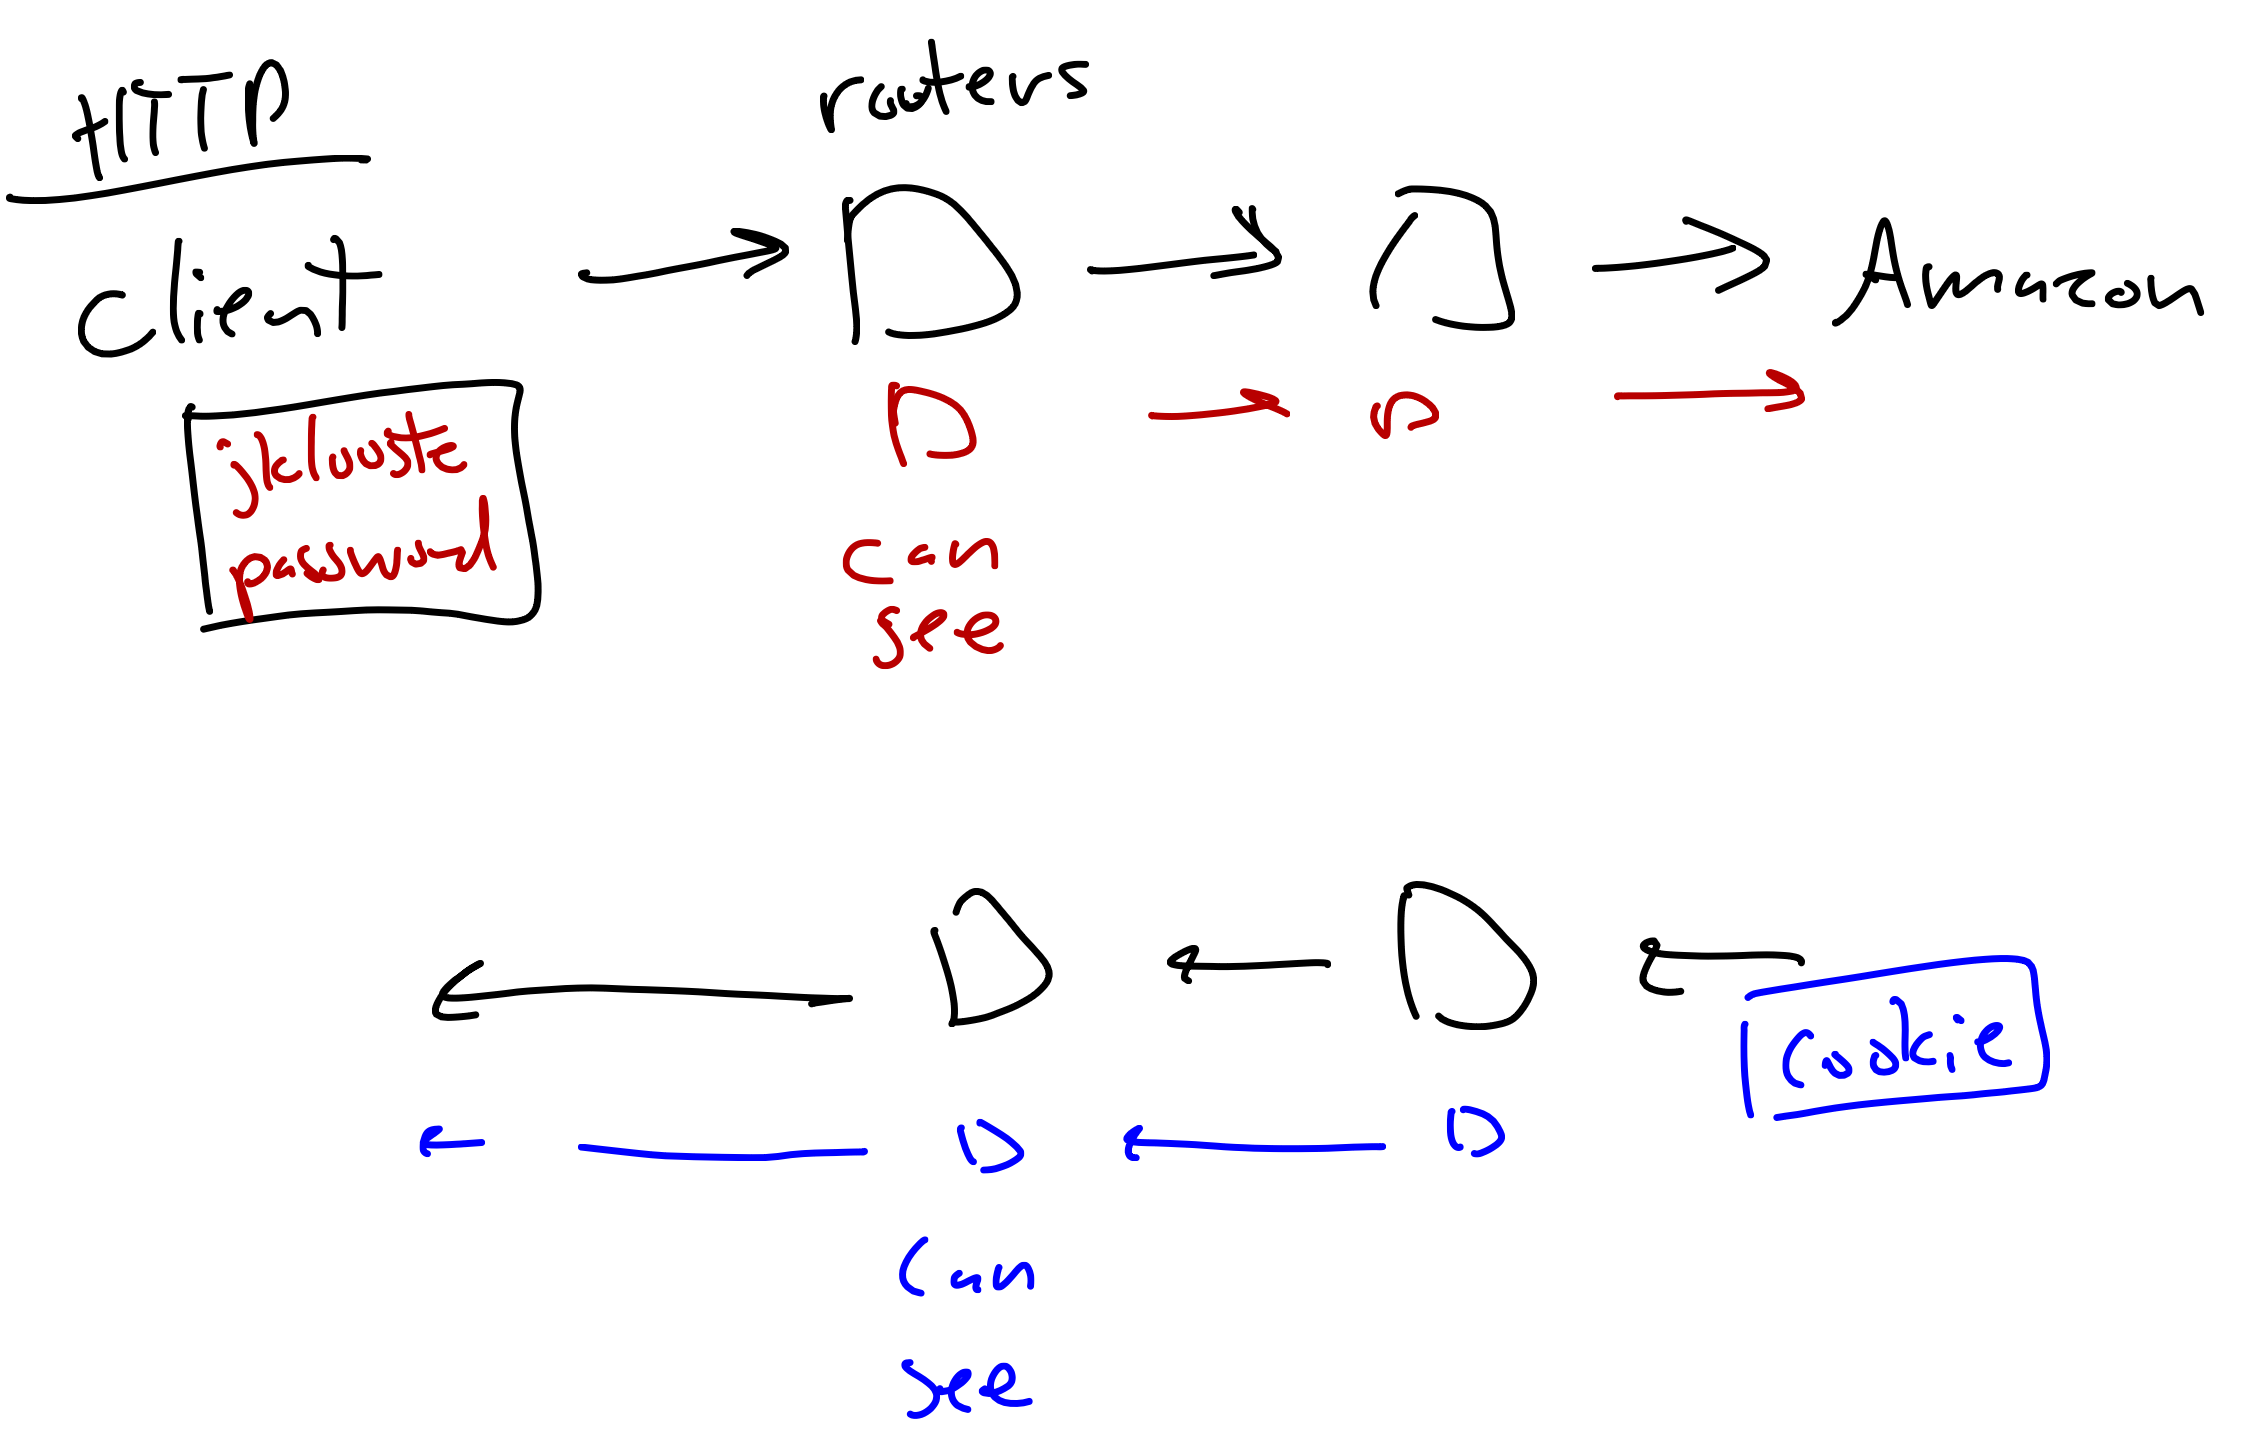 HTTP
routers
Client
Amazon
jklouste
password
can
see
Cookie
can
see